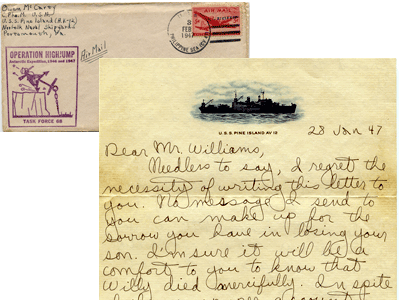 Owen McCarty
U.S.S. Pine Island (AV-12)
Norfolk Naval Shipyard
Portsmouth, Va
Air Mail
OPERATION HIGHJUMP
Antarctic Expedition, 1946 and 1947
TASK FORCE 68
3
FEB
1947
AIR MAIL
U.S.S. PINE ISLAND AV 12
28 Jan 47
Dear Mr. Williams,
Needless to say, I regret the
necessity of writing this letter to
you. No message I send to
you can make up for the
sorrow you have in losing your
son. I'm sure it will be a
comfort to you to know that
Willy died mercifully. In spite